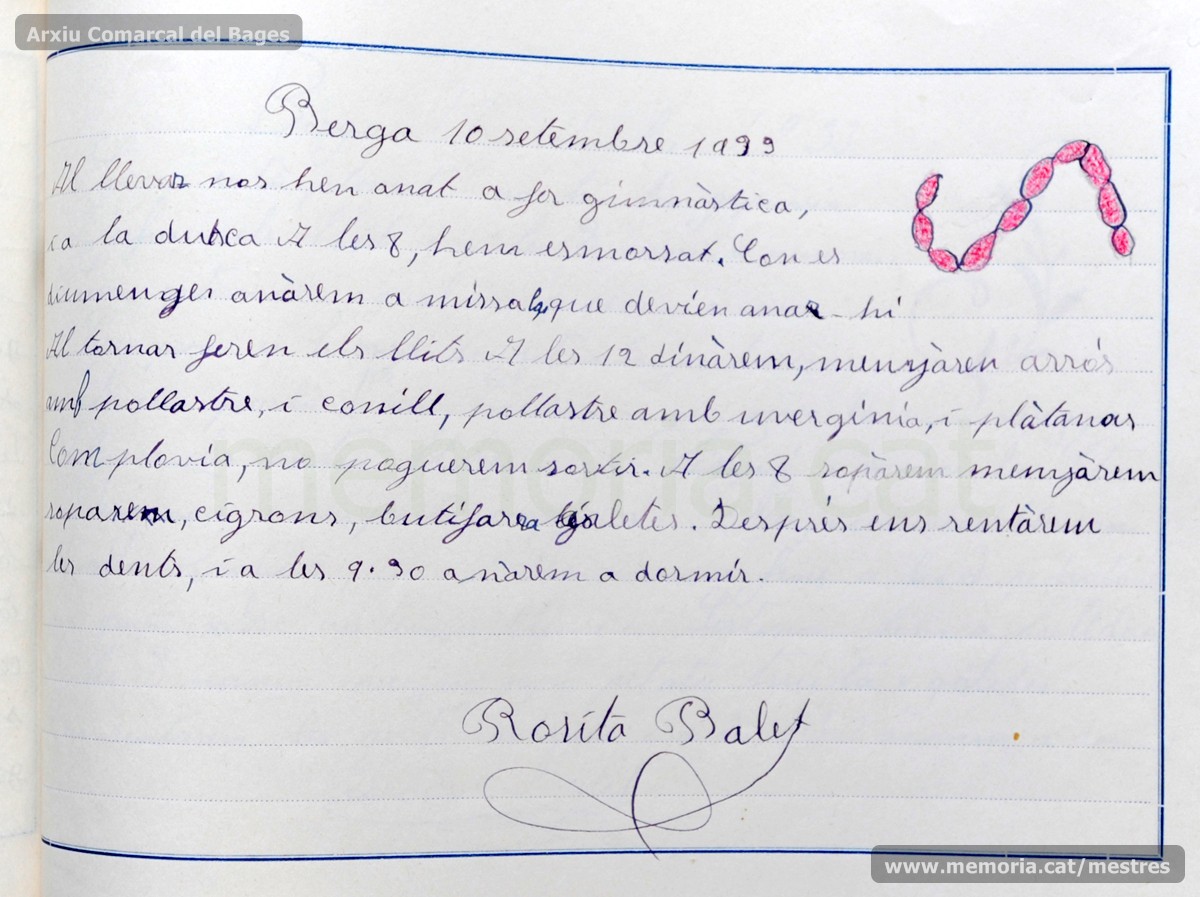 Arxiu Comarcal del Bages
Berga 10 setembre 1933
Al llevar nos hen anat a fer gimnàstica,
i a la dutxca A les 8, hem esmorsat. Con es
diumenge anàrem a missa les que devien anar-hi
Al tornar feren els llits A les 12 dinàrem, menjàren arrós
amb pollastre, i conill, pollastre amb uverginia, i plàtanos
Com plovia, no poguerem sortir. A les 8 sopàrem menjàrem
soparem, cigrons, butifarra galetes. Després ens rentàrem
les dents, i a les 9.30 anàrem a dormir.
memoria.cat
Rosita Balet
www.memoria.cat/mestres